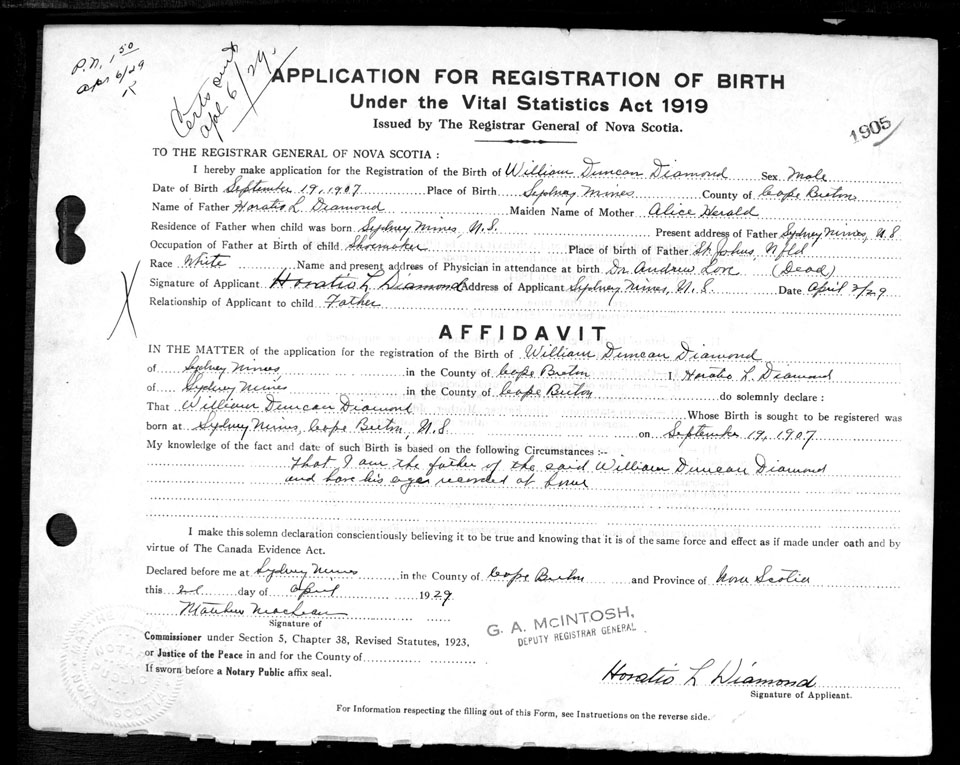 P.N. 1 50
Apr 6/29
Certs sent
Apl 6/29.
APPLICATION FOR REGISTRATION OF BIRTH
Under the Vital Statistics Act 1919
Issued by The Registrar General of Nova Scotia.
1905
TO THE REGISTRAR GENERAL OF NOVA SCOTIA :
I hereby make application for the Registration of the Birth of William Duncan Diamond Sex Male
Date of Birth September 19, 1907 Place of Birth Sydney Mines County of Cape Breton
Name of Father Horatio L. Diamond Maiden Name of Mother Alice Herald
Residence of Father when child was born Sydney Mines, N.S. Present address of Father Sydney Mines, N.S
Occupation of Father at Birth of child Shoemaker Place of birth of Father St. Johns Nfld
Race White Name and present address of Physician in attendance at birth Dr. Andrew (Dead)
Signature of Applicant Horatio L Diamond Address of Applicant Sydney Mines, N.S Date April 2/29
Relationship of Applicant to child Father
AFFIDAVIT
IN THE MATTER of the application for the registration of the Birth of William Duncan Diamond
of Sydney Mines in the County of Cape Breton I, Horatio L. Diamond
of Sydney Mines in the County of Cape Breton do solemnly declare :
That William Duncan Diamond Whose Birth is sought to be registered was
born at Sydney Mines, Cape Breton, N.S on September 19, 1907
My knowledge of the fact and date of such Birth is based on the following Circumstances :--
That I am the father of the said William Duncan Diamond
and have his ages recorded at home
I make this solemn declaration conscientiously believing it to be true and knowing that it is of the same force and effect as if made under oath and by
virtue of The Canada Evidence Act.
Declared before me at Sydney Mines in the County of Cape Breton and Province of Nova Scotia
this 2d day of April 1929
Matthew
Signature of
G. A. McINTOSH,
DEPUTY REGISTRAR GENERAL
Commissioner under Section 5, Chapter 38, Revised Statutes, 1923,
or Justice of the Peace in and for the County of
If sworn before a Notary Public affix seal.
Horatio L Diamond
Signature of Applicant.
For Information respecting the filling out of this Form, see Instructions on the reverse side.